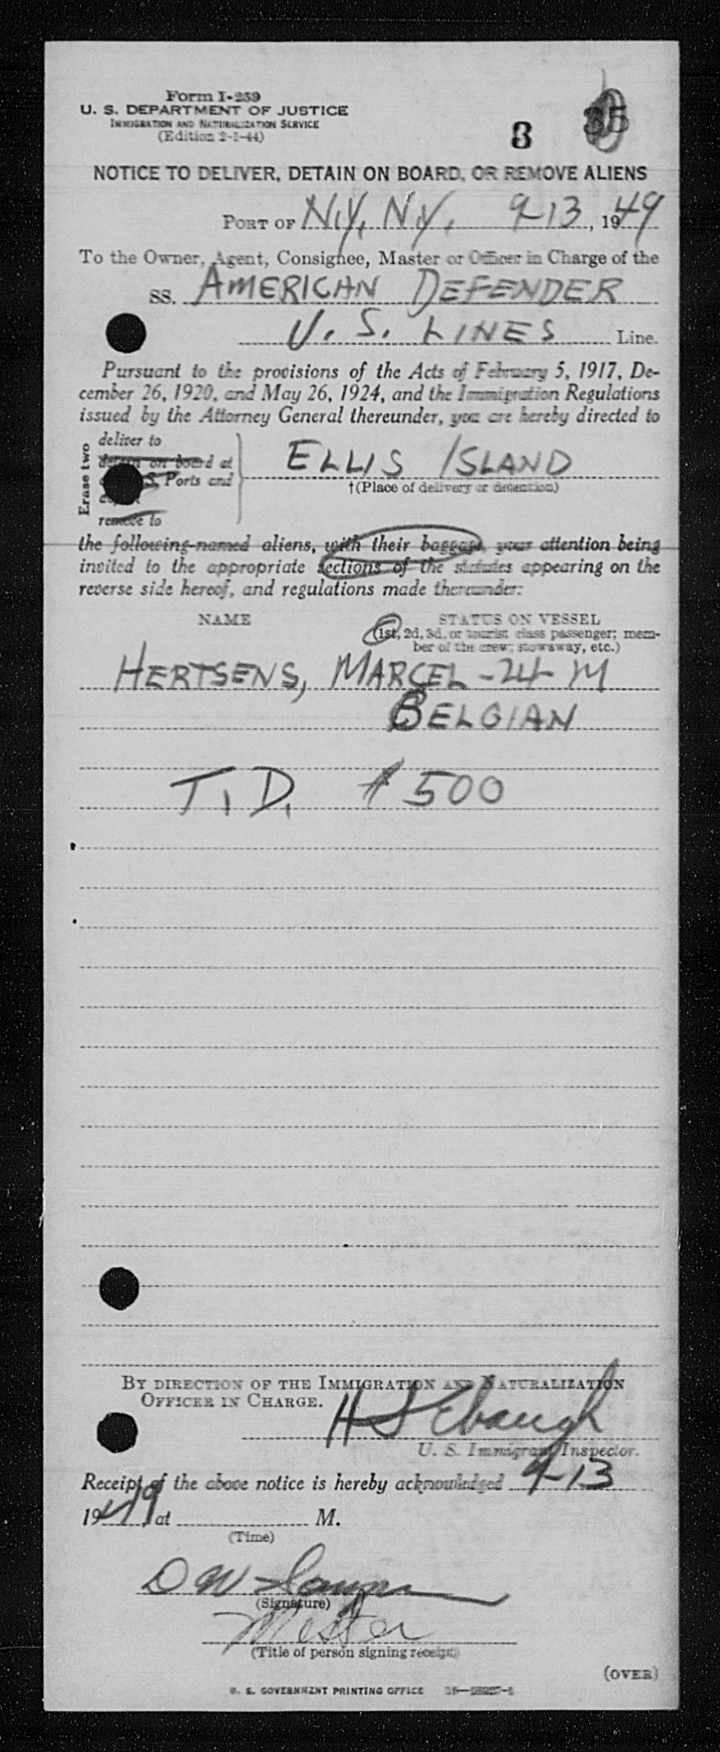 Form I-259
U. S. DEPARTMENT OF JUSTICE
IMMIGRATION AND NATURALIZATION SERVICE
(Edition 2-1-44)
3 35
NOTICE TO DELIVER, DETAIN ON BOARD, OR REMOVE ALIENS
PORT OF N.Y. N.Y. 9-13, 1949
To the Owner, Agent, Consignee, Master or Officer in Charge of the
SS. AMERICAN DEFENDER
U. S. LINES Line.
Pursuant to the provisions of the Acts of February 5, 1917, De-
cember 26, 1920, and May 26, 1924, and the Immigration Regulations
issued by the Attorney General thereunder, you are hereby directed to
Erase two
deliver to
detain on board at
Ports and
remove to
ELLIS ISLAND
†(Place of delivery or detention)
the following-named aliens, with their baggage, your attention being
invited to the appropriate sections of the statutes appearing on the
reverse side hereof, and regulations made thereunder:
NAME STATUS ON VESSEL
(1st, 2d, 3d, or tourist class passenger; mem-
ber of the crew; stowaway, etc.)
HERTSENS, MARCEL - 24 - M
BELGIAN
T. D. $500
BY DIRECTION OF THE IMMIGRATION AND NATURALIZATION
OFFICER IN CHARGE.
H S Ebaugh
U. S. Immigrant Inspector.
Receipt of the above notice is hereby acknowledged 9-13
1949 at M.
(Time)
D W
(Signature)
Master
(Title of person signing receipt)
(OVER)
U. S. GOVERNMENT PRINTING OFFICE